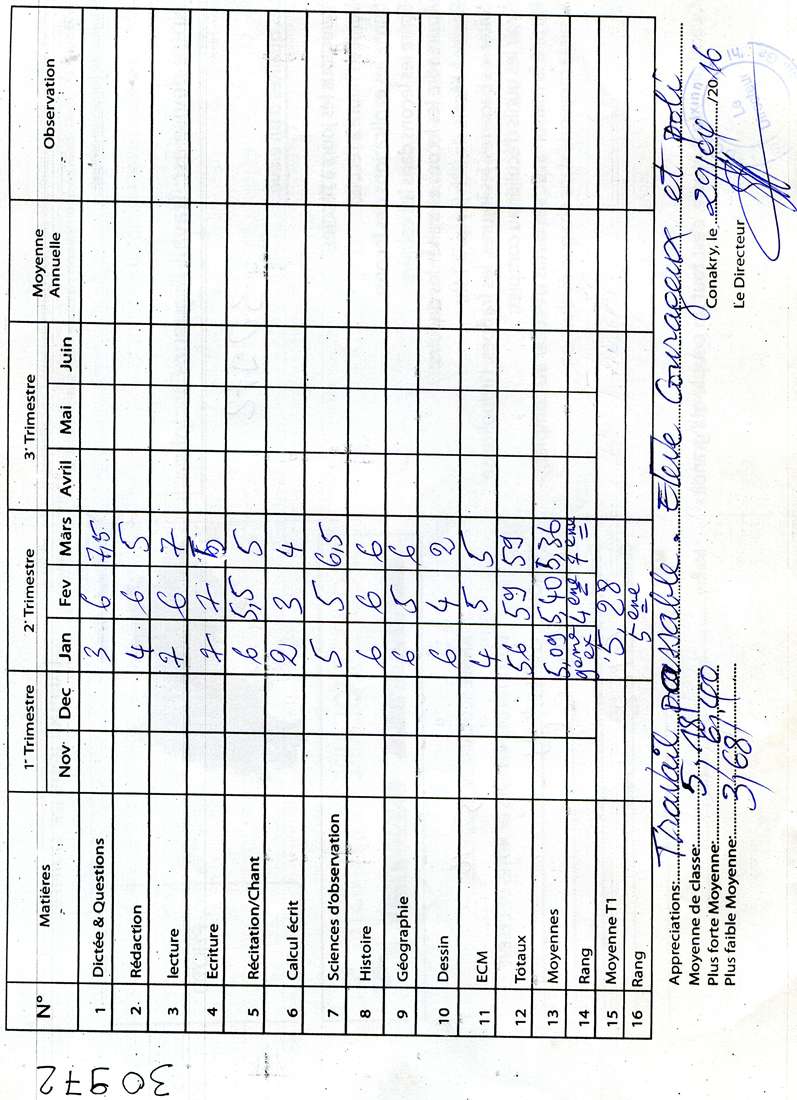 30972
N° Matières 1e Trimestre 2e Trimestre 3e Trimestre Moyenne Annuelle Observation
Nov Dec Jan Fev Mars Avril Mai Juin
1 Dictée & Questions 3 6 7,5
2 Rédaction 4 6 5
3 lecture 7 6 7
4 Ecriture 7 7 5
5 Récitation/Chant 6 5,5 5
6 Calcul écrit 2 3 4
7 Sciences d'observation 5 5 6,5
8 Histoire 6 6 6
9 Géographie 6 5 6
10 Dessin 6 4 2
11 ECM 4 5 5
12 Totaux 56 59 59
13 Moyennes 5,09 5,40 5,36
14 Rang 9eme ex 4ème 7ème
15 Moyenne T1 5,28
16 Rang 5ème
Appreciations: Travail passable. Elève Courageux et poli
Moyenne de classe: 5,18/
Plus forte Moyenne: 6,400 Conakry, le 29/04/2016
Plus faible Moyenne: 3,68/ Le Directeur